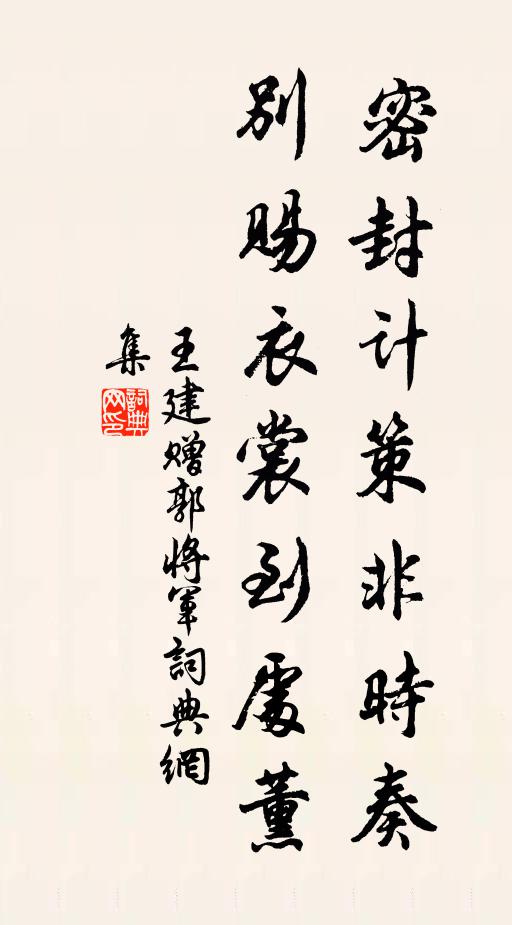 密封计策非時奏
别賜衣裳到處薰
王建赠郭将军詞典網
集
詞典
网印